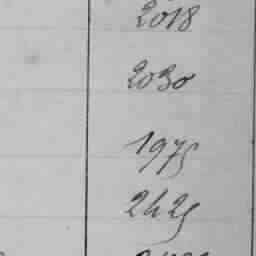 2018
2030
1975
2425